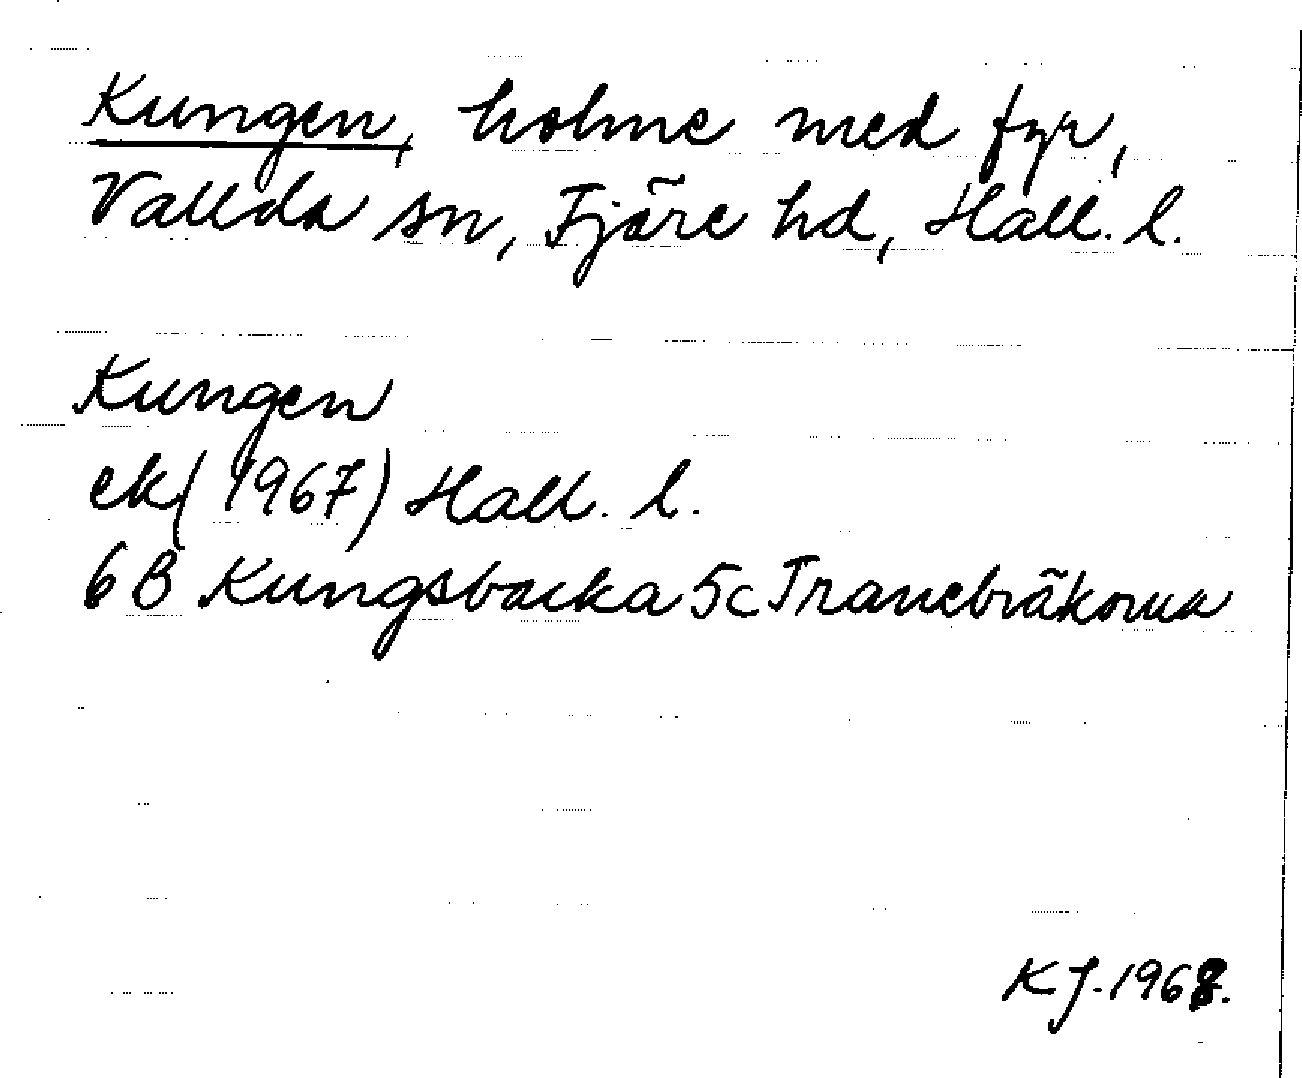 Kungen, holme med fyr,
Vallda sn, Fjäre hd, Hall. l.
Kungen
ek (1967) Hall. l.
6B Kungsbacka 5c Tranebräkorna
KJ. 1968.